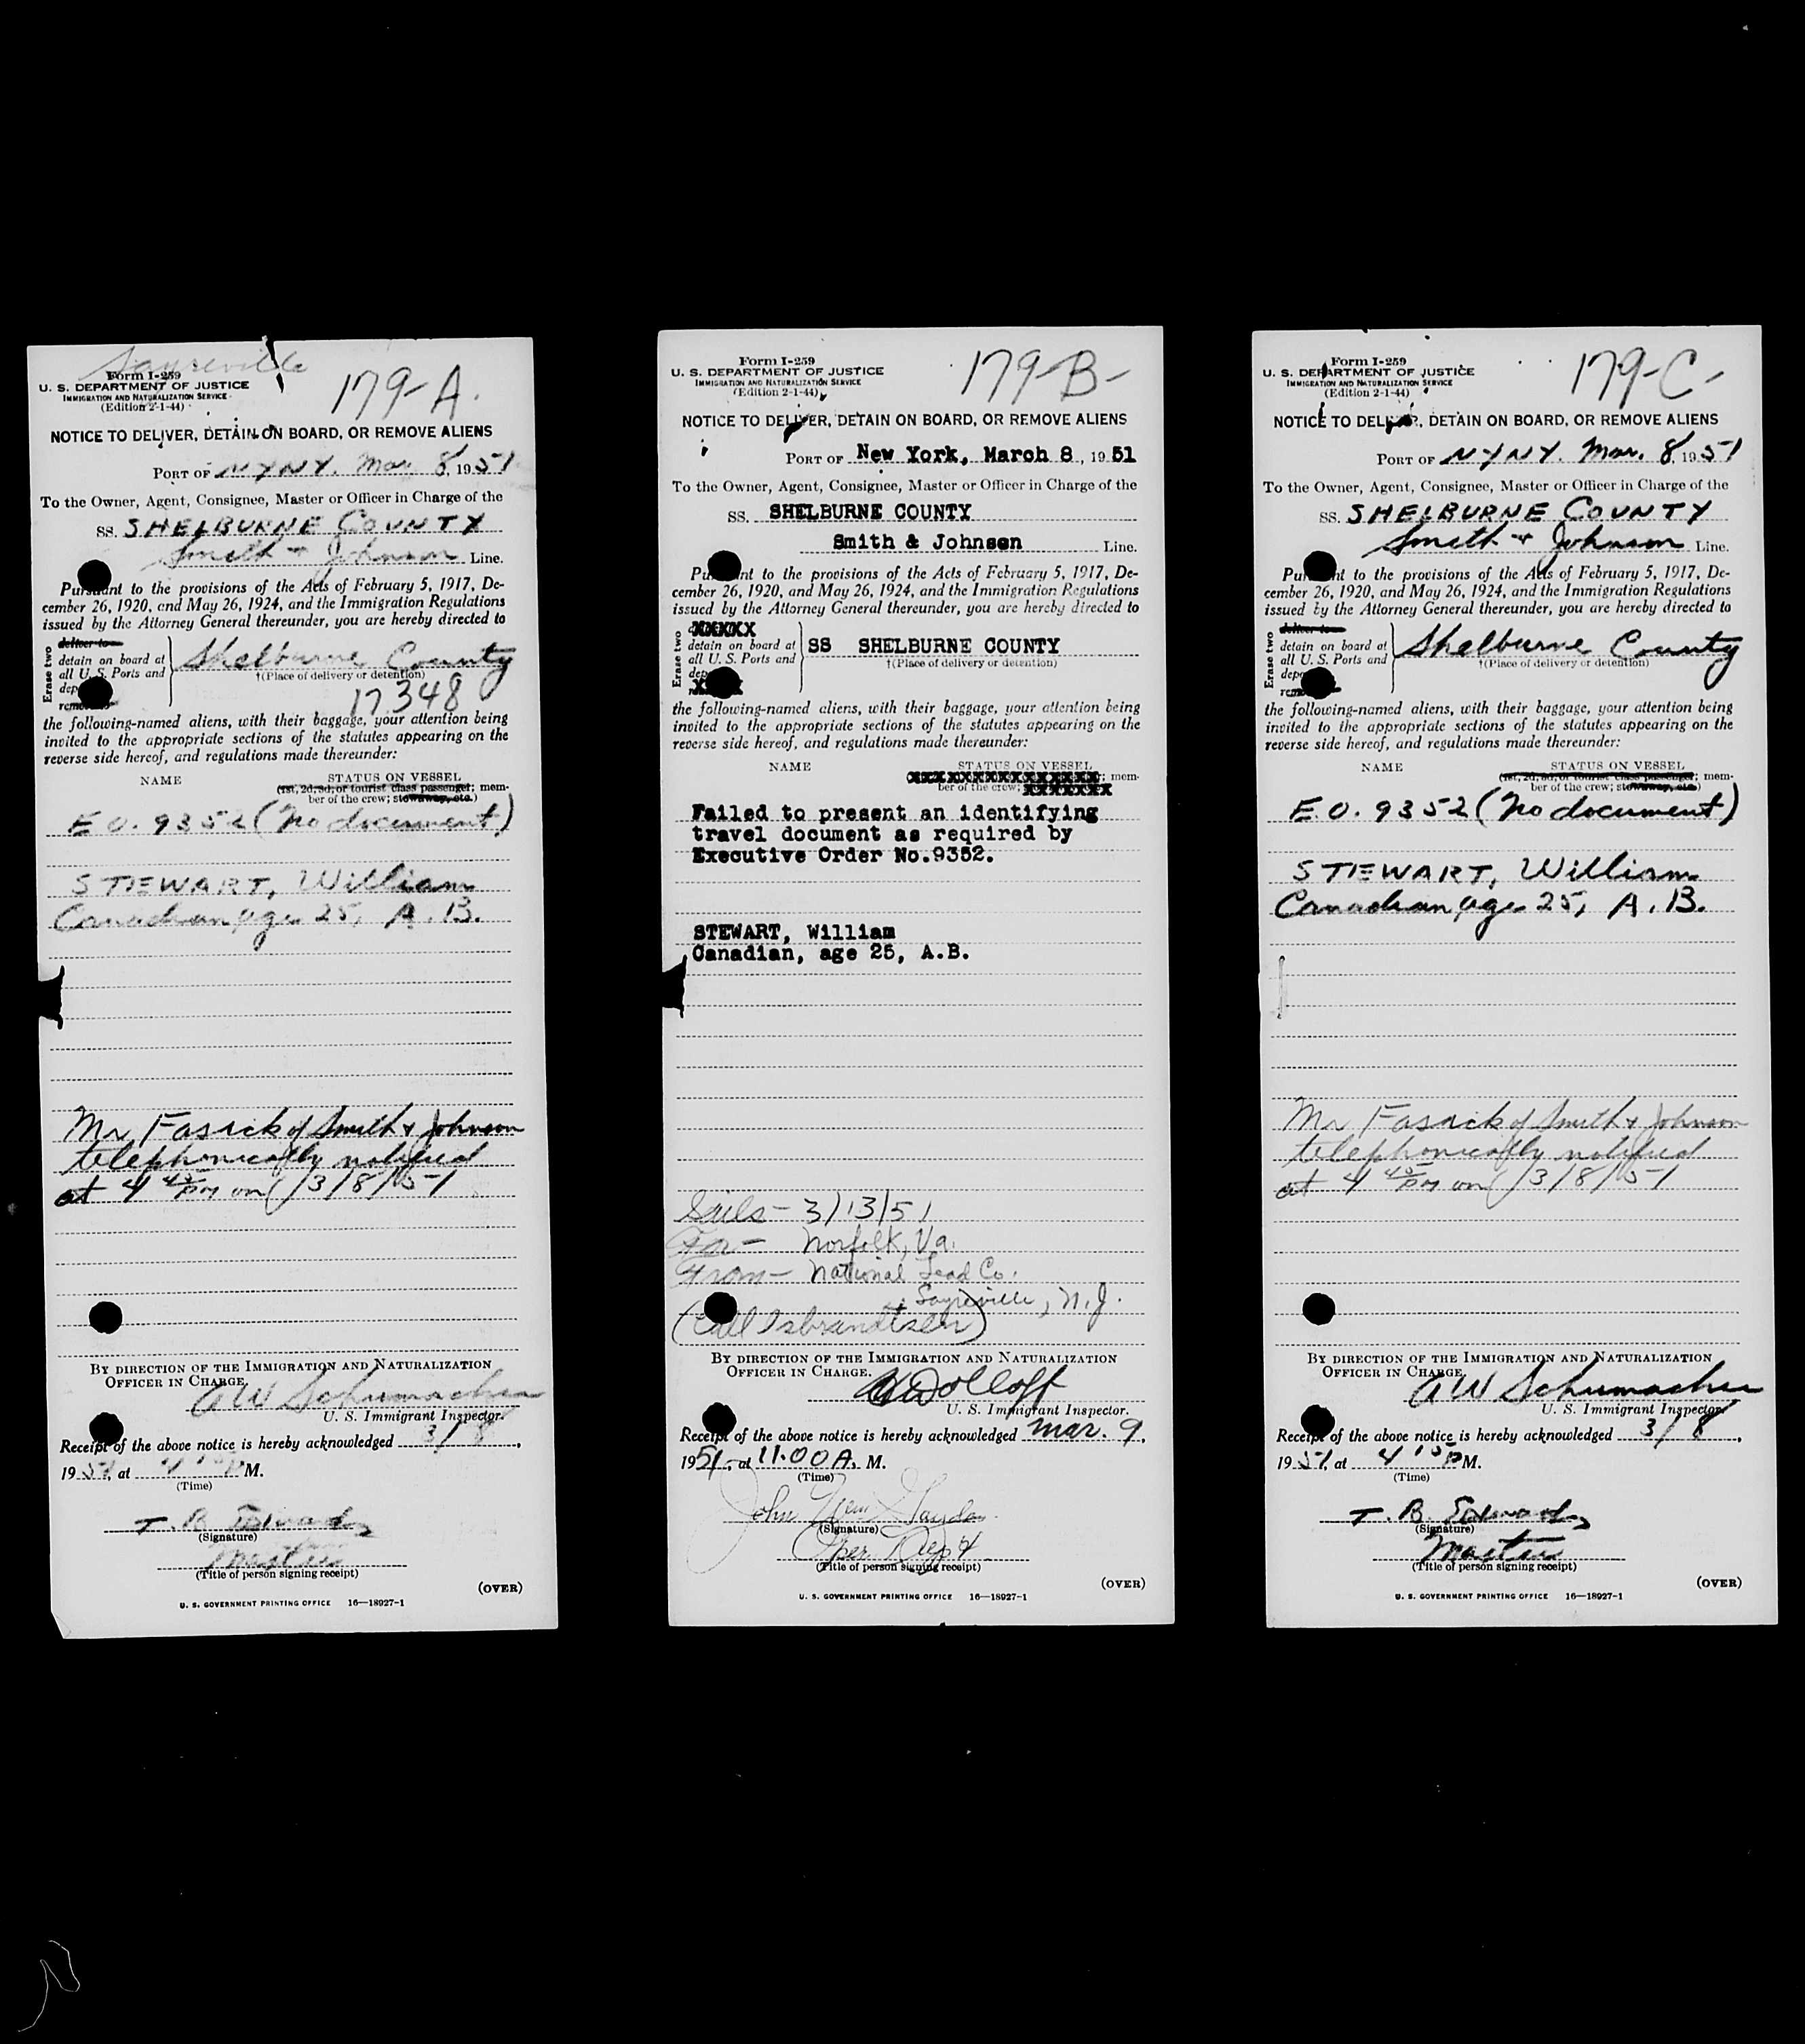 Sayreville
Form I-259
U. S. DEPARTMENT OF JUSTICE
IMMIGRATION AND NATURALIZATION SERVICE
(Edition 2-1-44)
179-A.
NOTICE TO DELIVER, DETAIN ON BOARD, OR REMOVE ALIENS
PORT OF NYNY. Mar 8, 1951
To the Owner, Agent, Consignee, Master or Officer in Charge of the
SS. SHELBURNE COUNTY
Smith & Johnson Line.
Pursuant to the provisions of the Acts of February 5, 1917, De-
cember 26, 1920, and May 26, 1924, and the Immigration Regulations
issued by the Attorney General thereunder, you are hereby directed to
Erase two
deliver to
detain on board at
all U. S. Ports and
Shelburne County
†(Place of delivery or detention)
17348
the following-named aliens, with their baggage, your attention being
invited to the appropriate sections of the statutes appearing on the
reverse side hereof, and regulations made thereunder:
NAME STATUS ON VESSEL
(1st, 2d, 3d, or tourist class passenger; mem-
ber of the crew; stowaway, etc.)
E.O. 9352 (No document)
STEWART, William
Canadian, age 25, A.B.
Mr Fasick of Smith & Johnson
telephonically notified
at 4 45 PM on 3/8/51
BY DIRECTION OF THE IMMIGRATION AND NATURALIZATION
OFFICER IN CHARGE.
AW Schumacher
U. S. Immigrant Inspector.
Receipt of the above notice is hereby acknowledged 3/8,
1951, at 4 15 P M.
(Time)
T. B. Edwards
(Signature)
Master
(Title of person signing receipt)
(OVER)
U. S. GOVERNMENT PRINTING OFFICE 16—18927-1
Form I-259
U. S. DEPARTMENT OF JUSTICE
IMMIGRATION AND NATURALIZATION SERVICE
(Edition 2-1-44)
179-B-
NOTICE TO DELIVER, DETAIN ON BOARD, OR REMOVE ALIENS
PORT OF New York, March 8, 1951
To the Owner, Agent, Consignee, Master or Officer in Charge of the
SS. SHELBURNE COUNTY
Smith & Johnsen Line.
Pursuant to the provisions of the Acts of February 5, 1917, De-
cember 26, 1920, and May 26, 1924, and the Immigration Regulations
issued by the Attorney General thereunder, you are hereby directed to
Erase two
XXXXX
detain on board at
all U. S. Ports and
SS SHELBURNE COUNTY
†(Place of delivery or detention)
the following-named aliens, with their baggage, your attention being
invited to the appropriate sections of the statutes appearing on the
reverse side hereof, and regulations made thereunder:
NAME STATUS ON VESSEL
XXXXXXXXXXXXXXXXX; mem-
ber of the crew; XXXXXXXX
Failed to present an identifying
travel document as required by
Executive Order No.9352.
STEWART, William
Canadian, age 25, A.B.
Sails- 3/13/51
For- Norfolk, Va.
From- National Lead Co.
Sayreville, N.J.
(Call Isbrandtsen)
BY DIRECTION OF THE IMMIGRATION AND NATURALIZATION
OFFICER IN CHARGE.
U. S. Immigrant Inspector.
Receipt of the above notice is hereby acknowledged Mar. 9,
1951, at 11:00 A. M.
(Time)
John
(Signature)
Oper Dept
(Title of person signing receipt)
(OVER)
U. S. GOVERNMENT PRINTING OFFICE 16—18927-1
Form I-259
U. S. DEPARTMENT OF JUSTICE
IMMIGRATION AND NATURALIZATION SERVICE
(Edition 2-1-44)
179-C-
NOTICE TO DELIVER, DETAIN ON BOARD, OR REMOVE ALIENS
PORT OF NYNY. Mar. 8, 1951
To the Owner, Agent, Consignee, Master or Officer in Charge of the
SS. SHELBURNE COUNTY
Smith & Johnson Line.
Pursuant to the provisions of the Acts of February 5, 1917, De-
cember 26, 1920, and May 26, 1924, and the Immigration Regulations
issued by the Attorney General thereunder, you are hereby directed to
Erase two
deliver to
detain on board at
all U. S. Ports and
Shelburne County
†(Place of delivery or detention)
the following-named aliens, with their baggage, your attention being
invited to the appropriate sections of the statutes appearing on the
reverse side hereof, and regulations made thereunder:
NAME STATUS ON VESSEL
(1st, 2d, 3d, or tourist class passenger; mem-
ber of the crew; stowaway, etc.)
E.O. 9352 (No document)
STEWART, William
Canadian, age 25, A.B.
Mr Fasick of Smith & Johnson
telephonically notified
at 4 45 PM on 3/8/51
BY DIRECTION OF THE IMMIGRATION AND NATURALIZATION
OFFICER IN CHARGE.
AW Schumacher
U. S. Immigrant Inspector.
Receipt of the above notice is hereby acknowledged 3/8,
1951, at 4 15 P M.
(Time)
T. B. Edwards
(Signature)
Master
(Title of person signing receipt)
(OVER)
U. S. GOVERNMENT PRINTING OFFICE 16—18927-1